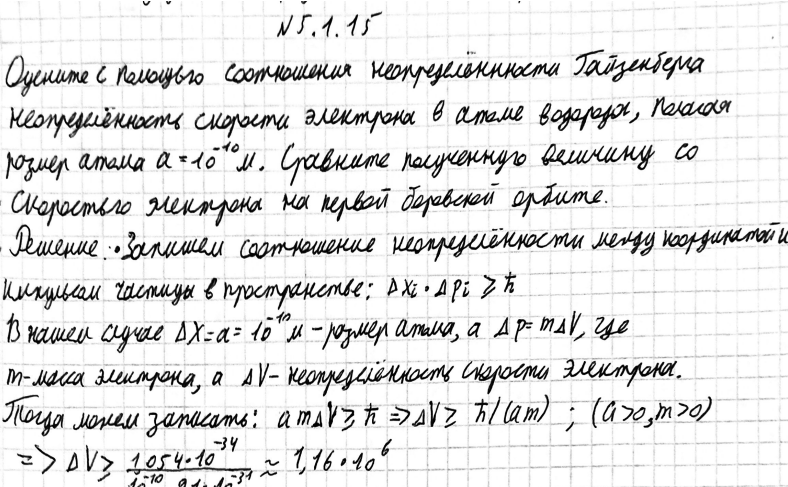 N5.1.15
Оцените с помощью соотношения неопределённности Гайзенберга
неопределённость скорости электрона в атоме водорода, полагая
размер атома a = 10⁻¹⁰ м. Сравните полученную величину со
скоростью электрона на первой боровской орбите.
Решение. • Запишем соотношение неопределённости между координатой и
импульсом частицы в пространстве: Δxi · Δpi ≥ ħ
В нашем случае ΔX = a = 10⁻¹⁰ м – размер атома, а Δp = mΔV, где
m – масса электрона, а ΔV – неопределённость скорости электрона.
Тогда можем записать: amΔV ≥ ħ => ΔV ≥ ħ/(am) ; (a>0, m>0)
=> ΔV ≥ 1054·10⁻³⁴ / 10⁻¹⁰ · 9,1·10⁻³¹ ≈ 1,16·10⁶